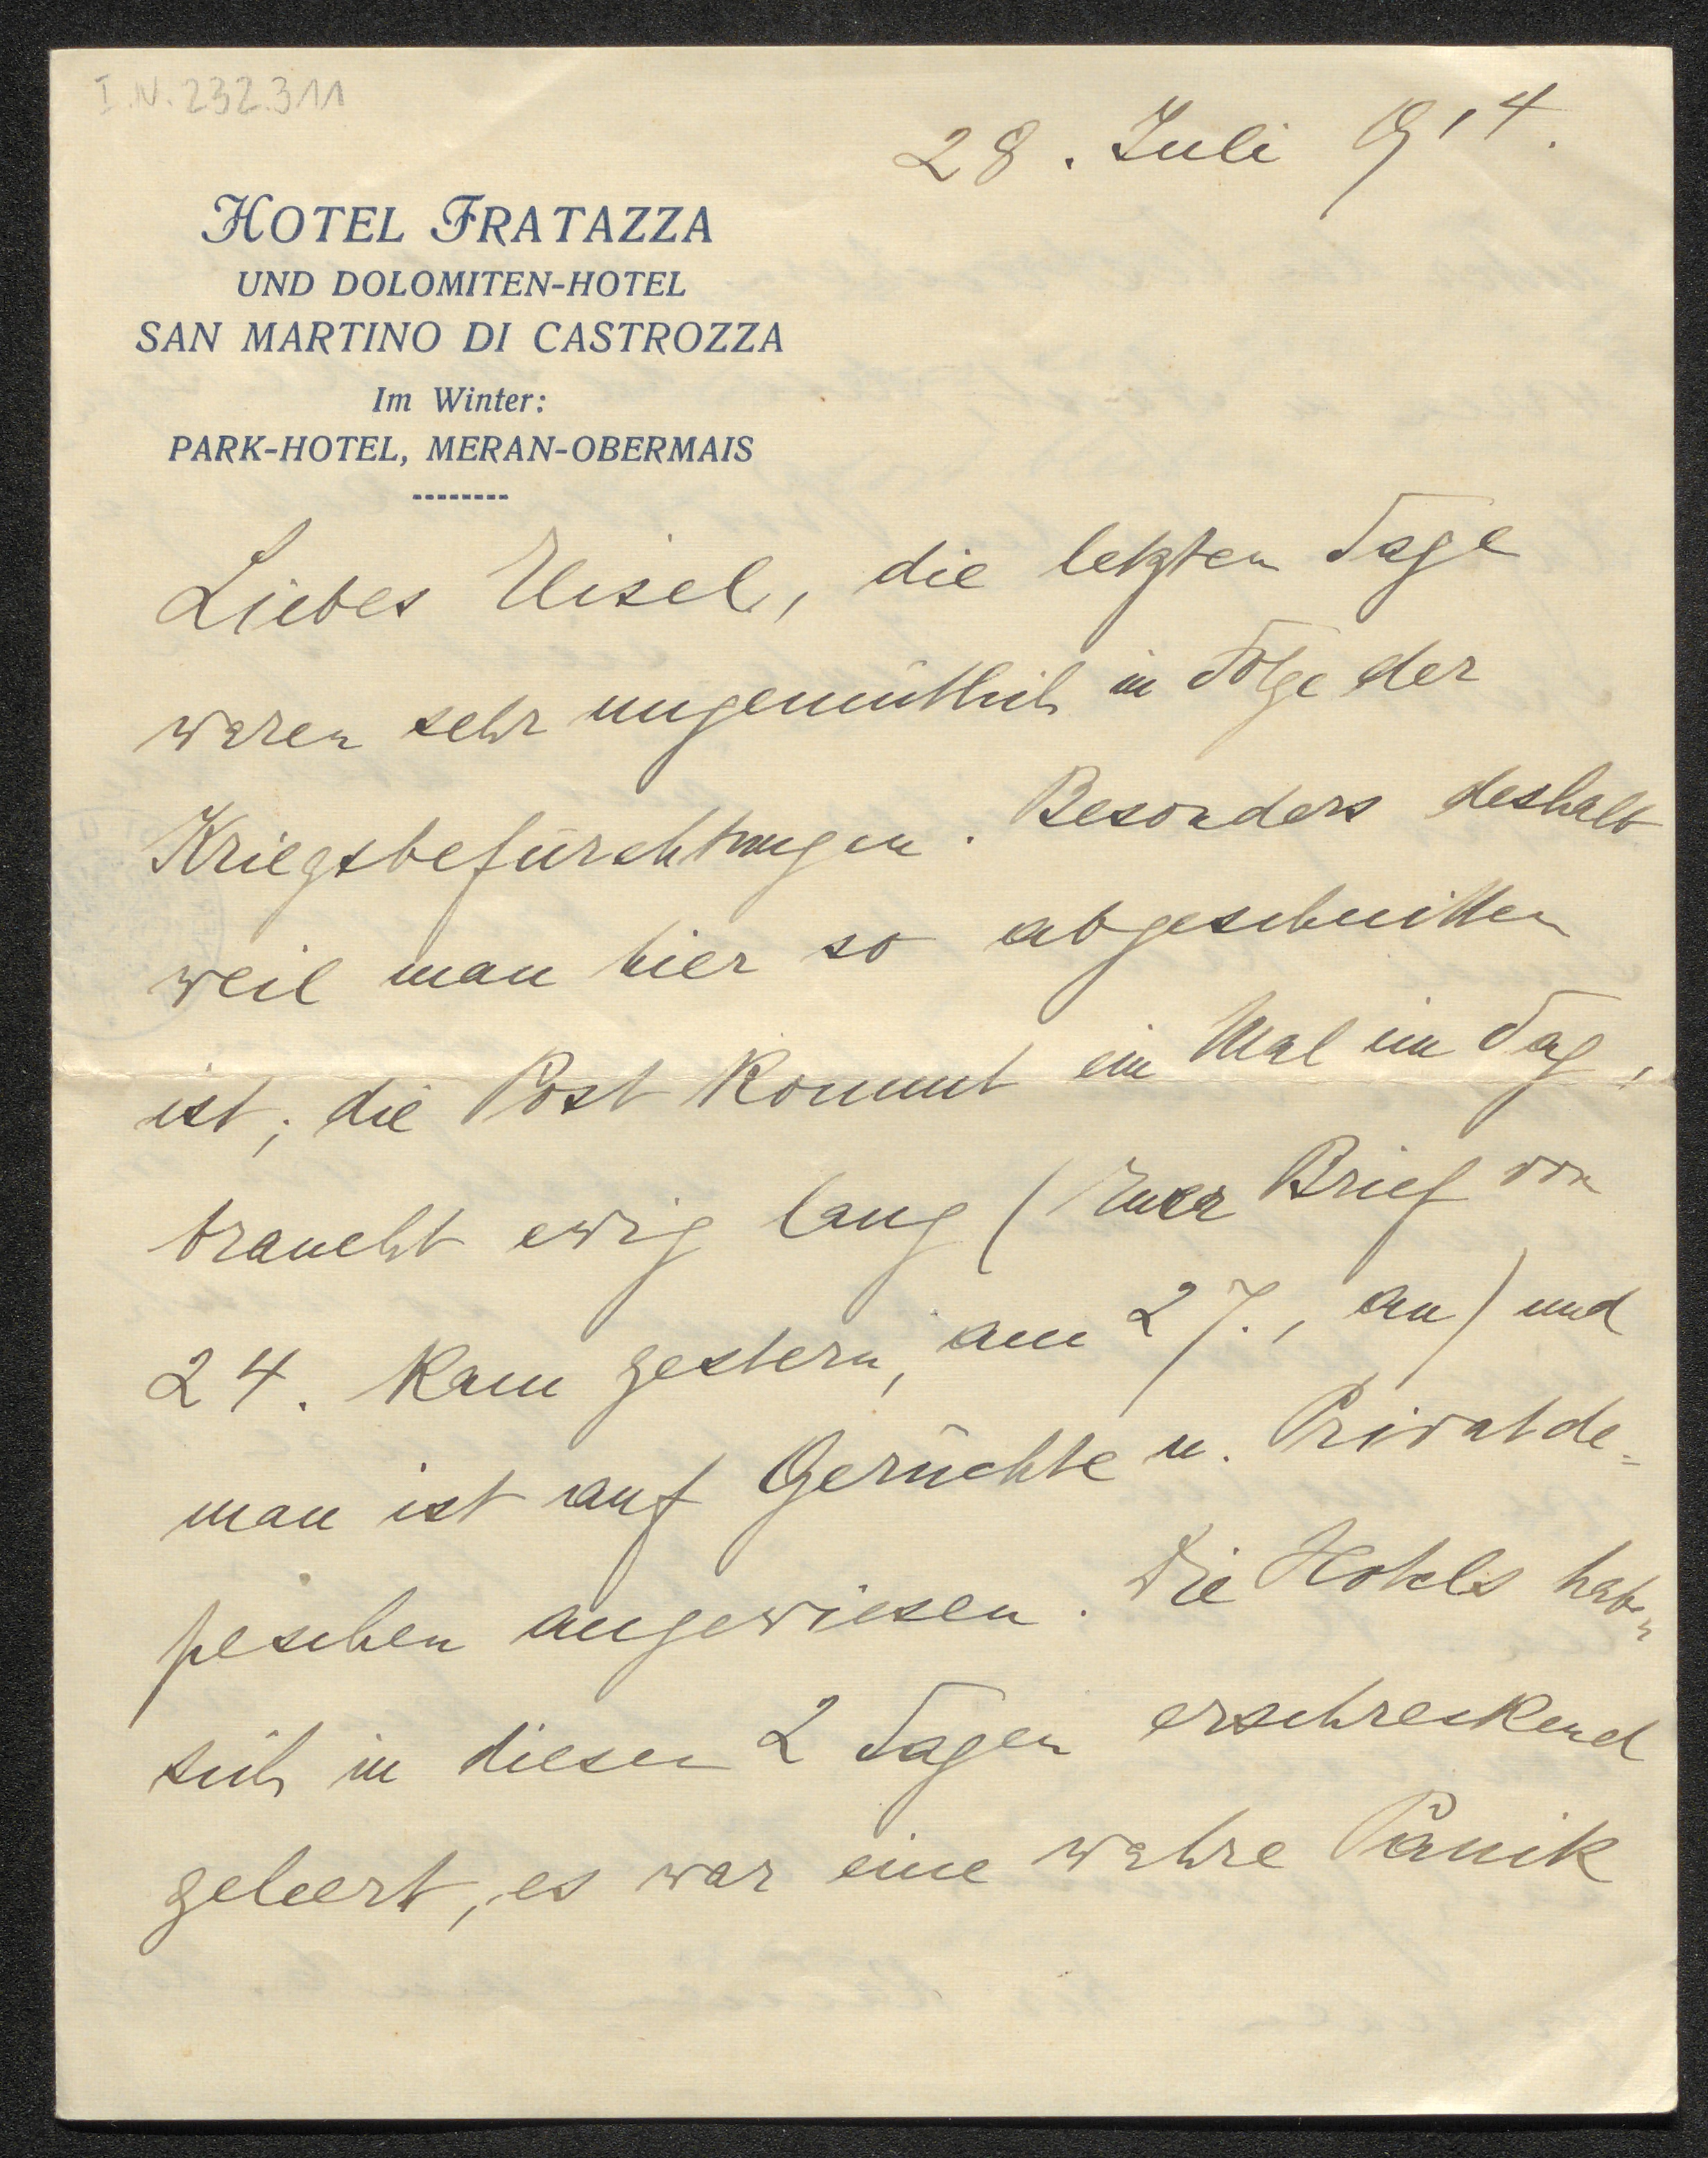 I.N. 232.311
28. Juli 914.
HOTEL FRATAZZA
UND DOLOMITEN-HOTEL
SAN MARTINO DI CASTROZZA
Im Winter:
PARK-HOTEL, MERAN-OBERMAIS
Liebes , die letzten Tage
waren sehr ungemüthlich in Folge der
Kriegsbefürchtungen. Besonders deshalb
weil man hier so abgeschnitten
ist; die Post kommt ein Mal im Tag,
braucht ewig lang (Euer Brief von
24. kam gestern, am 27., an) und
man ist auf Gerüchte u. Privatde=
peschen angewiesen. Die Hotels haben
sich in diesen 2 Tagen erschreckend
geleert, es war eine wahre Panik